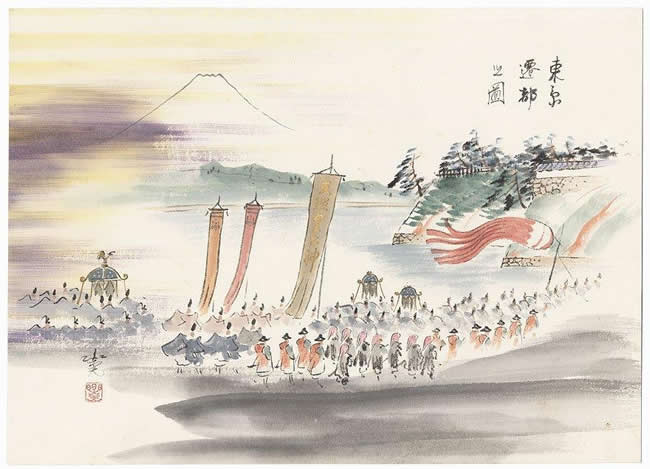 東京
遷都
之圖